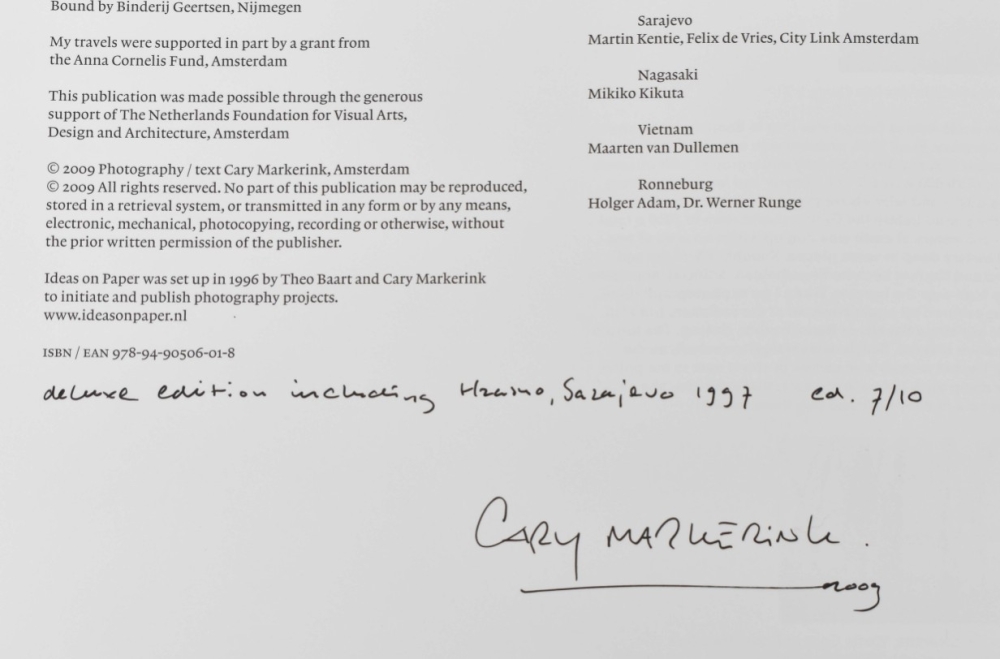 Bound by Binderij Geertsen, Nijmegen
My travels were supported in part by a grant from
the Anna Cornelis Fund, Amsterdam
This publication was made possible through the generous
support of The Netherlands Foundation for Visual Arts,
Design and Architecture, Amsterdam
© 2009 Photography / text Cary Markerink, Amsterdam
© 2009 All rights reserved. No part of this publication may be reproduced,
stored in a retrieval system, or transmitted in any form or by any means,
electronic, mechanical, photocopying, recording or otherwise, without
the prior written permission of the publisher.
Ideas on Paper was set up in 1996 by Theo Baart and Cary Markerink
to initiate and publish photography projects.
www.ideasonpaper.nl
ISBN / EAN 978-94-90506-01-8
Sarajevo
Martin Kentie, Felix de Vries, City Link Amsterdam
Nagasaki
Mikiko Kikuta
Vietnam
Maarten van Dullemen
Ronneburg
Holger Adam, Dr. Werner Runge
deluxe edition including Hrasno, Sarajevo 1997 ed. 7/10
CARY MARKERINK.
2009